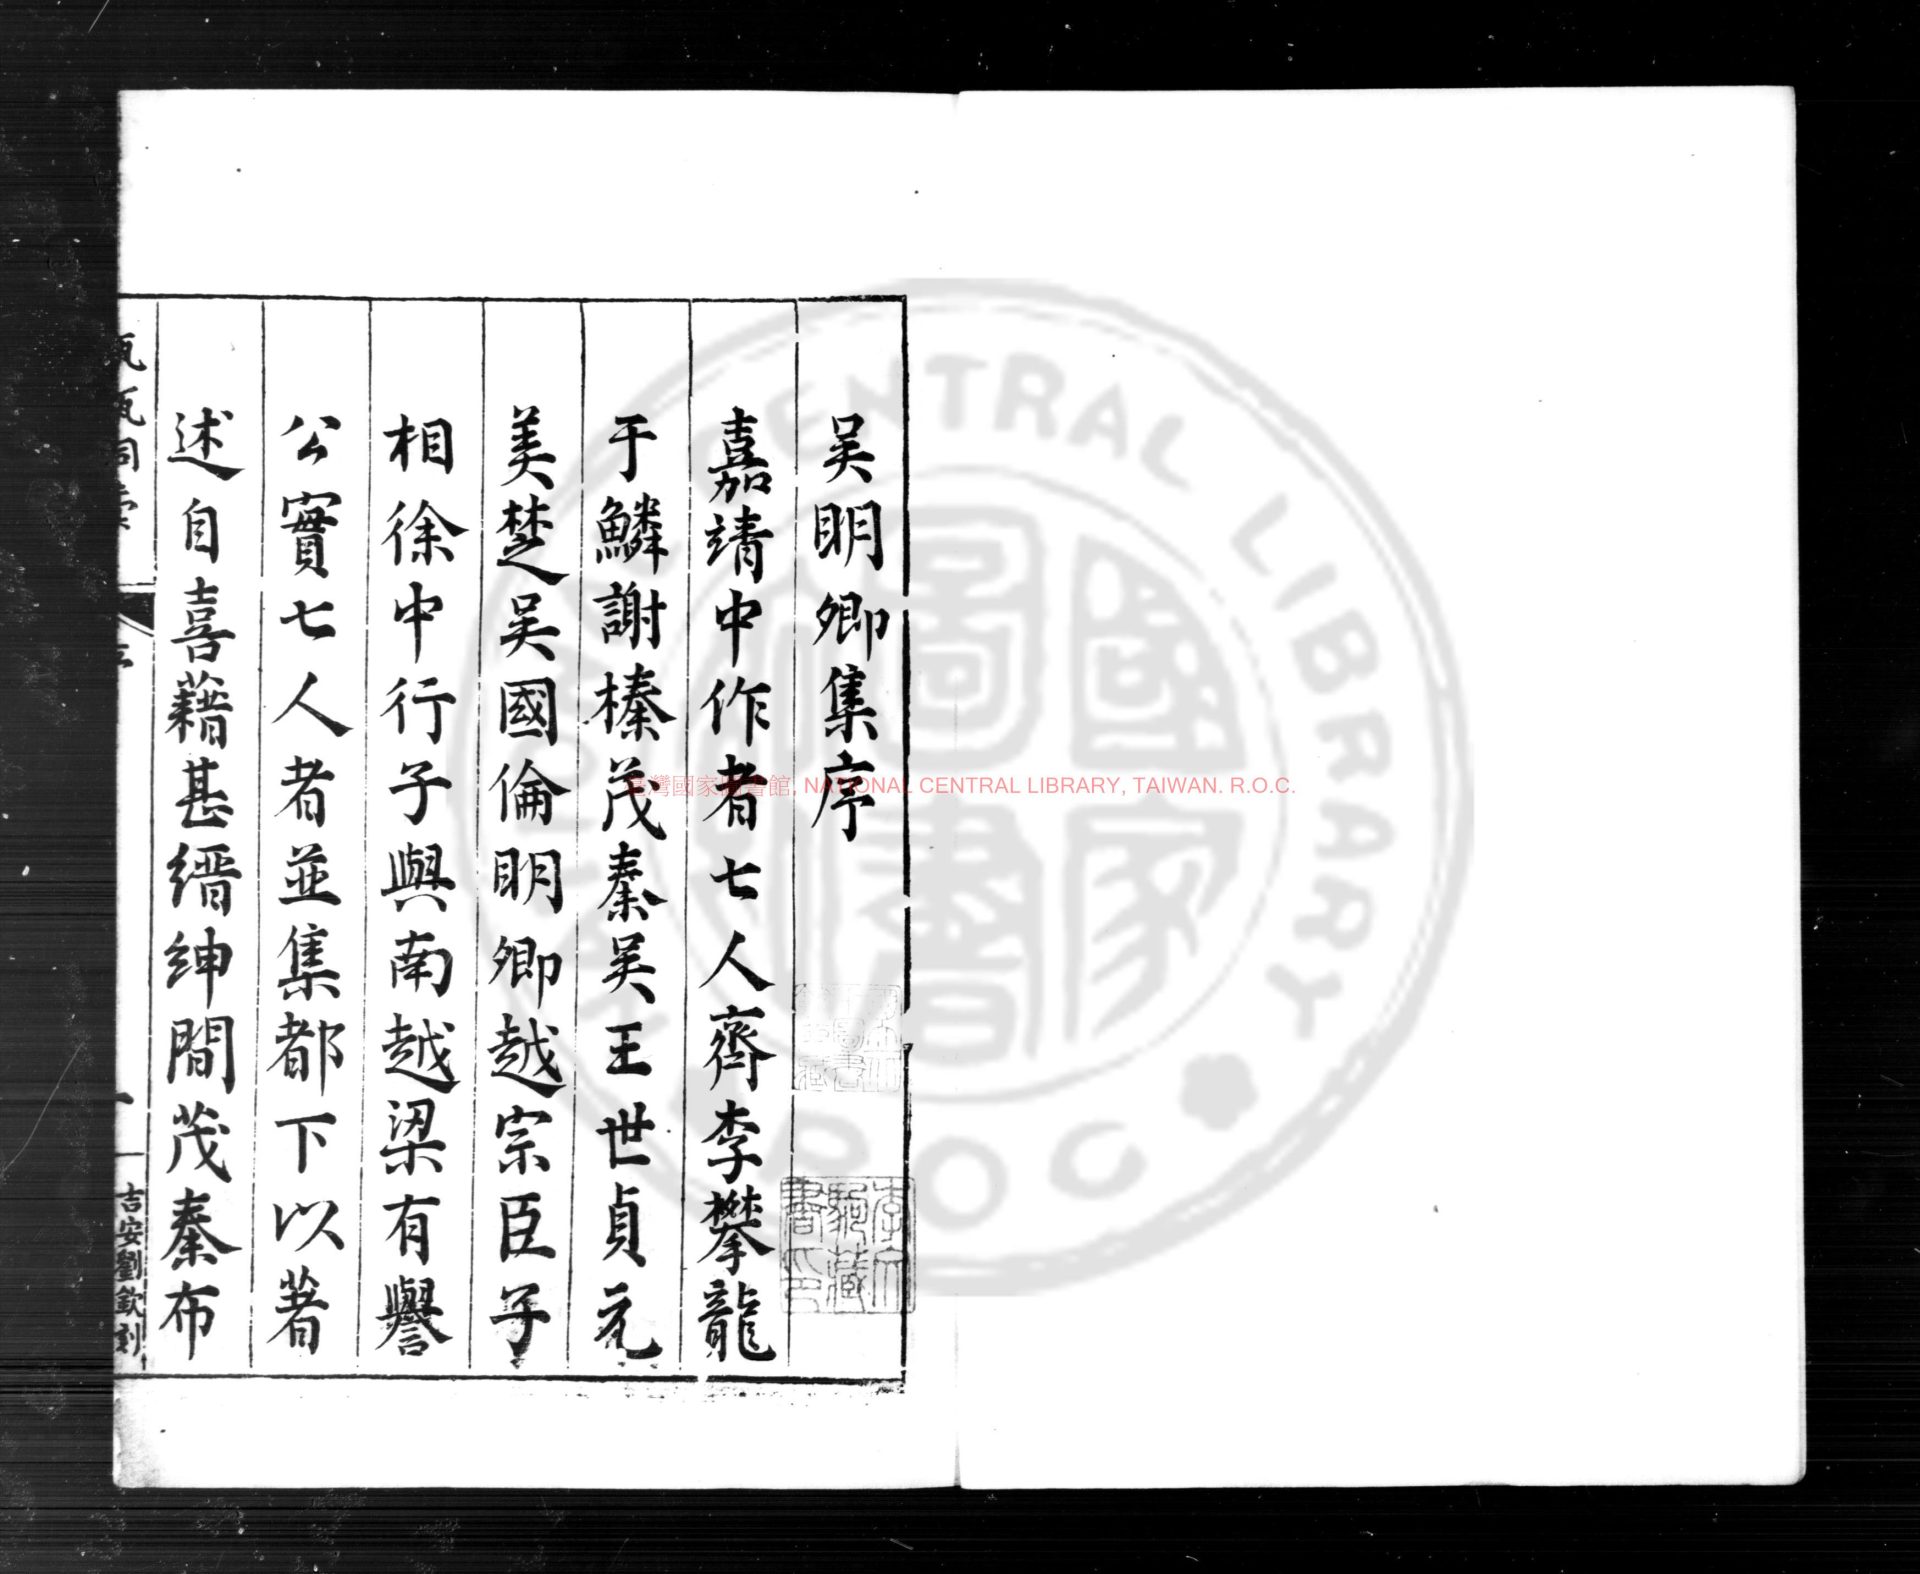 吴明卿集序
嘉靖中作者七人齊李攀龍
于鱗謝榛茂秦吴王世貞元
美楚吴國倫明卿越宗臣子
相徐中行子與南越梁有譽
公實七人者並集都下以著
述自喜藉甚縉紳間茂秦布
吉安劉欽刻
臺灣國家圖書館, NATIONAL CENTRAL LIBRARY, TAIWAN. R.O.C.
CENTRAL LIBRARY
國家圖書
R.O.C.
李文
駒藏
書氏印